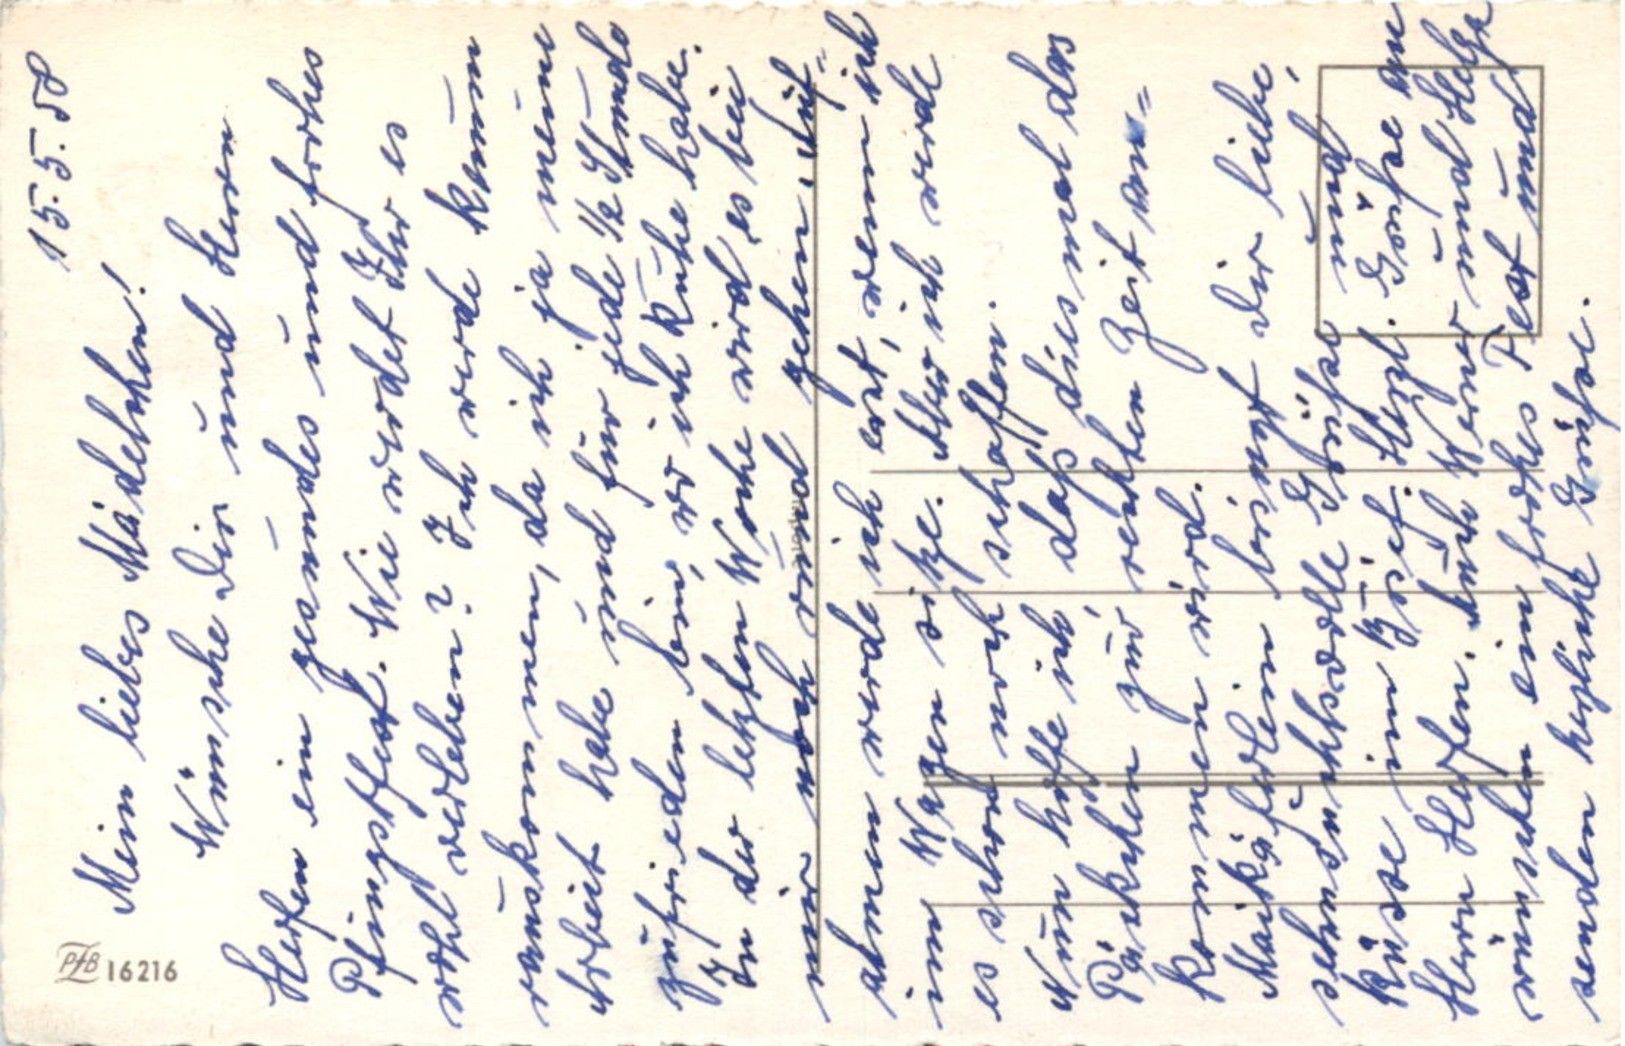 15.5.58
Mein liebes Mädelchen!
Wünsche Dir und Herrn
Herfen ein gesundes und frohes
Pfingstfest. Wie werdet Ihr es
wohl verleben? Ich werde kaum
rauskommen, da ich ja meine
Arbeit habe und für jede 1/2 Stunde
zufrieden bin, wo ich Ruhe habe.
In der letzten Woche wird es bei
mir noch rund gehen. Auf-
atmen werde ich erst, wenn ich
im Wagen sitze. Aber ich werde
es schon noch schaffen.
Nun hoffe ich, daß diesmal das
Päckchen zur rechten Zeit an-
kommen wird.
Maikäferlein bringt Dir liebe,
sehnsuchtsvolle Grüße und
Küsse im Brief. Herzl. Grüße an
Herrn Herfen. Werner und Helga
wünschen ein frohes Fest und
senden herzliche Grüße.
PFB 16216